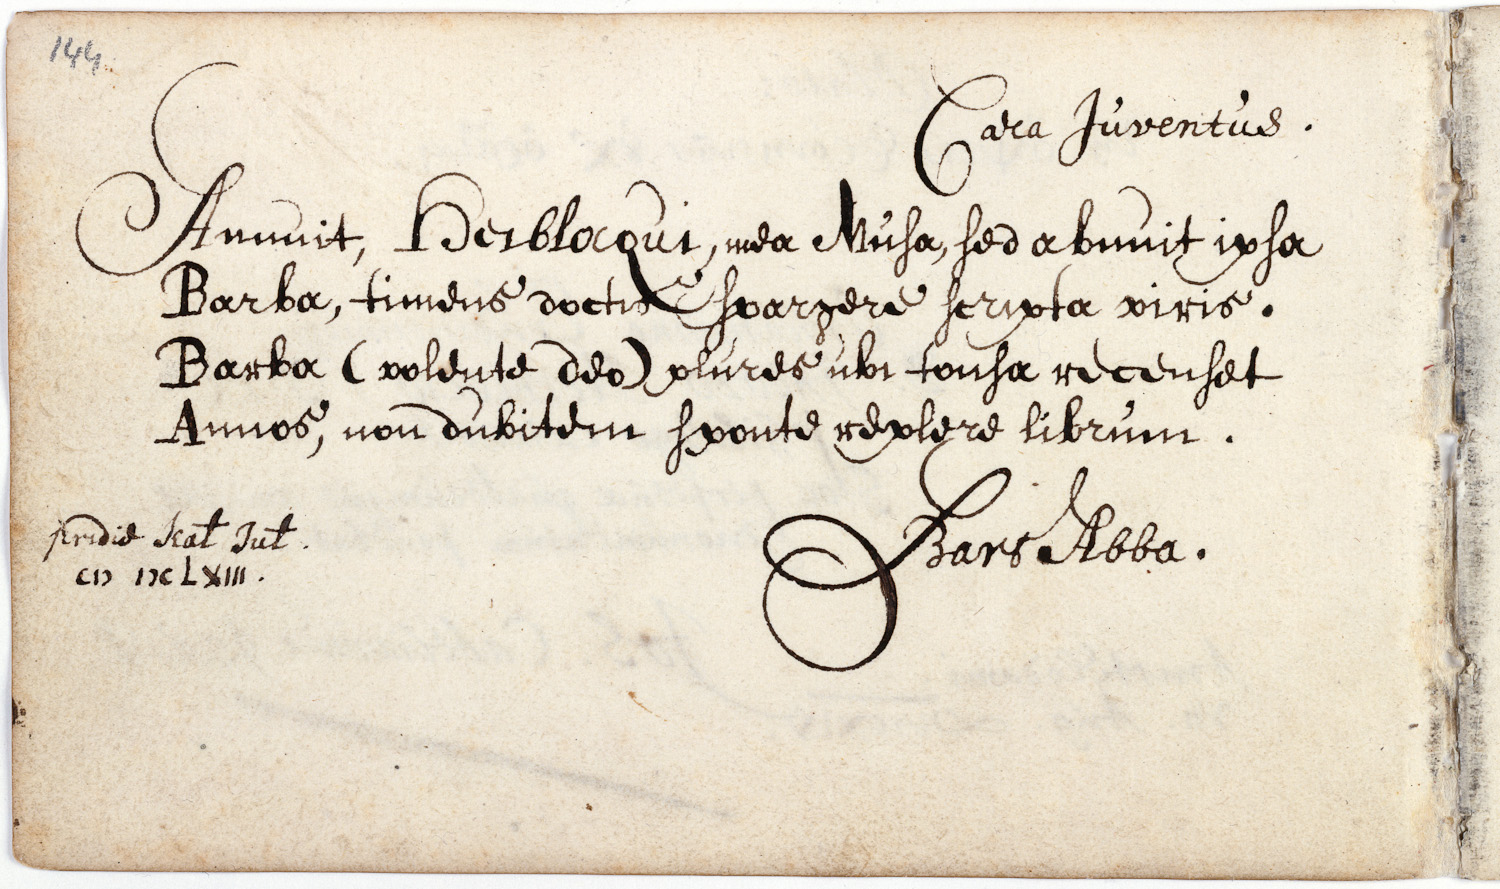 144
Cara Juventus.
Annuit, Herblocqui, mea Musa, sed abnuit ipsa
Barba, timens doctis spargere scripta viris.
Barba (volente deo) plures ubi tonsa recenset
Annos, non dubitem sponte replere librum.
Bars Abba.
pridie Kal Jul.
CIƆ IƆC LXIII.